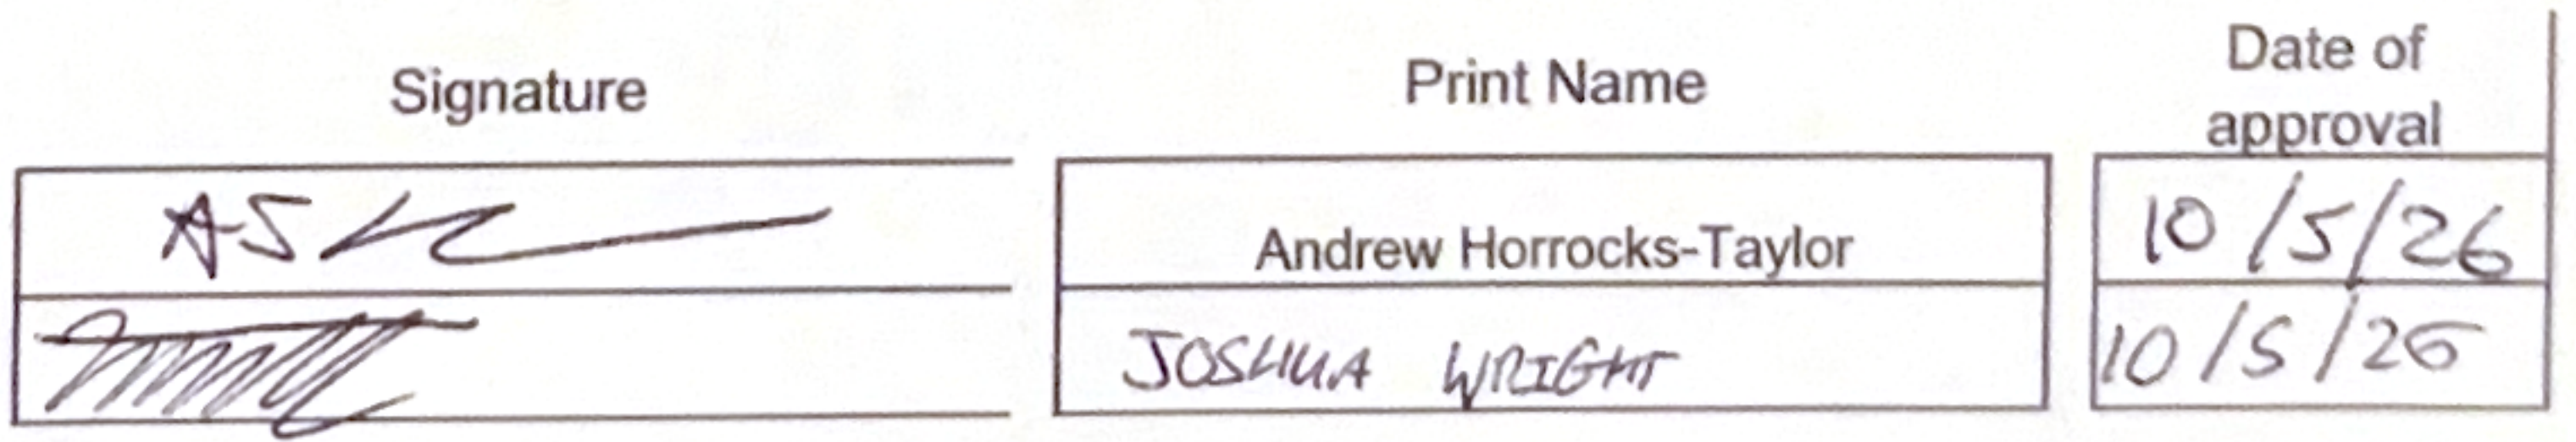 Signature Print Name Date of
approval
Andrew Horrocks-Taylor 10/5/26
JOSHUA WRIGHT 10/5/26